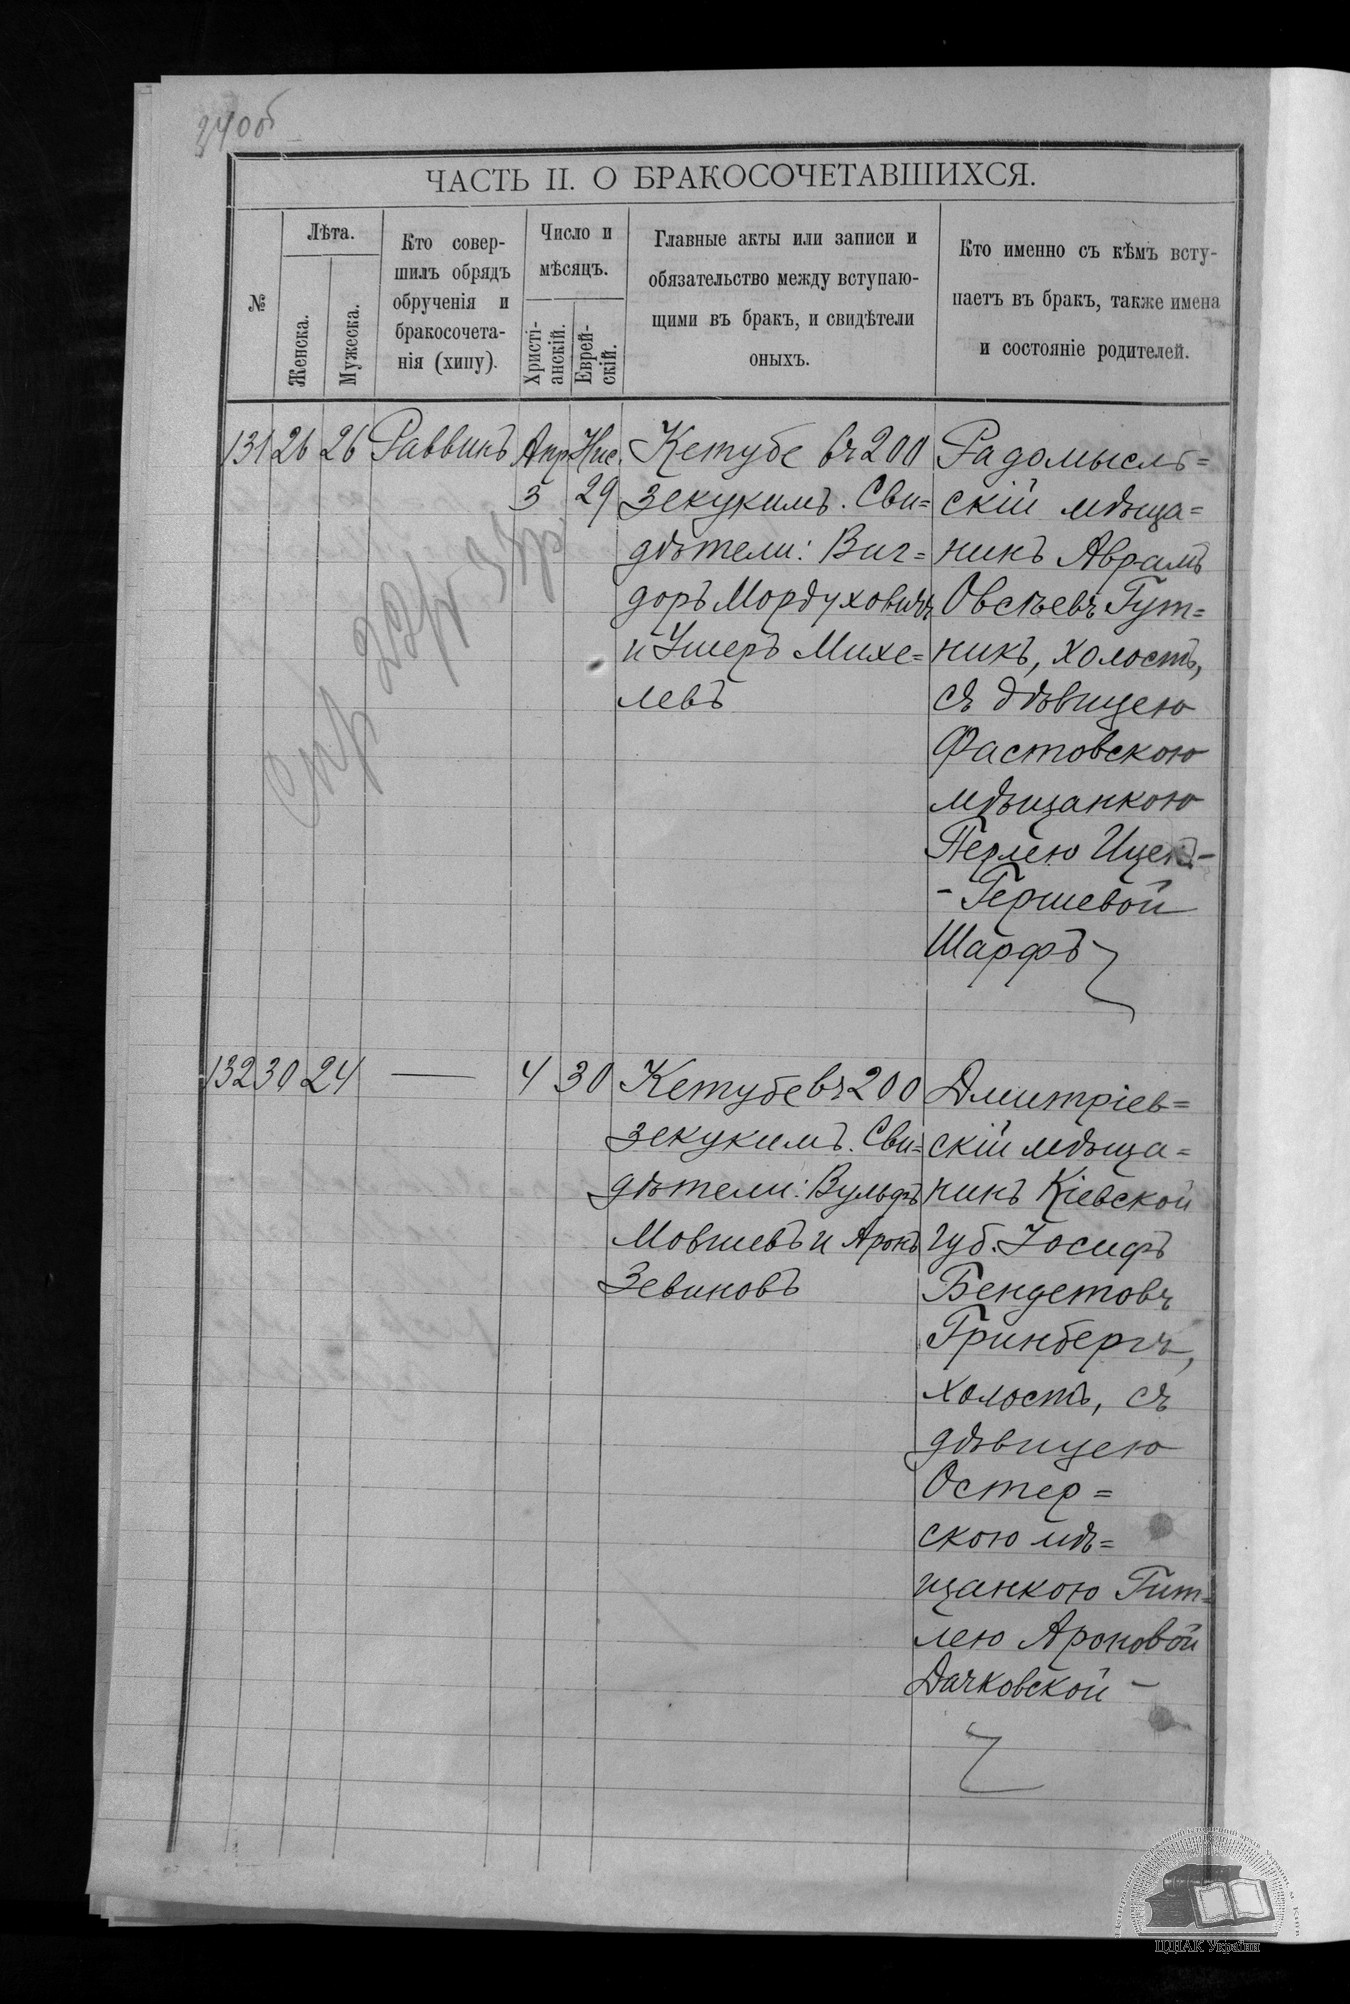 ЧАСТЬ II. О БРАКОСОЧЕТАВШИХСЯ.
№
Лѣта.
Женска.
Мужеска.
Кто совер-
шилъ обрядъ
обрученія и
бракосочета-
нія (хипу).
Число и
мѣсяцъ.
Христі-
анскій.
Еврей-
скій.
Главные акты или записи и
обязательство между вступаю-
щими въ бракъ, и свидѣтели
оныхъ.
Кто именно съ кѣмъ всту-
паетъ въ бракъ, также имена
и состояніе родителей.
131 26 26 Раввинъ Апр. Нис.
3 29
Кетубе въ 200
зекукимъ. Сви=
дѣтели: Виг=
доръ Мордуховичъ
и Ушеръ Михе=
левъ
Радомысль=
скій мѣща=
нинъ Аврамъ
Овсѣевъ Гут=
никъ, холостъ,
съ дѣвицею
Фастовскою
мѣщанкою
Перлею Ицек-
- Гершевой
Шарфъ
132 30 24 — 4 30
Кетубе въ 200
зекукимъ. Сви=
дѣтели: Вульфъ
Мовшевъ и Аронъ
Зевиновъ
Дмитріев=
скій мѣща=
нинъ Кіевской
губ. Іосифъ
Бендетовъ
Гринбергъ,
холостъ, съ
дѣвицею
Остер=
скою мѣ=
щанкою Гит=
лею Ароновой
Дачковской -
ЦДІАК України